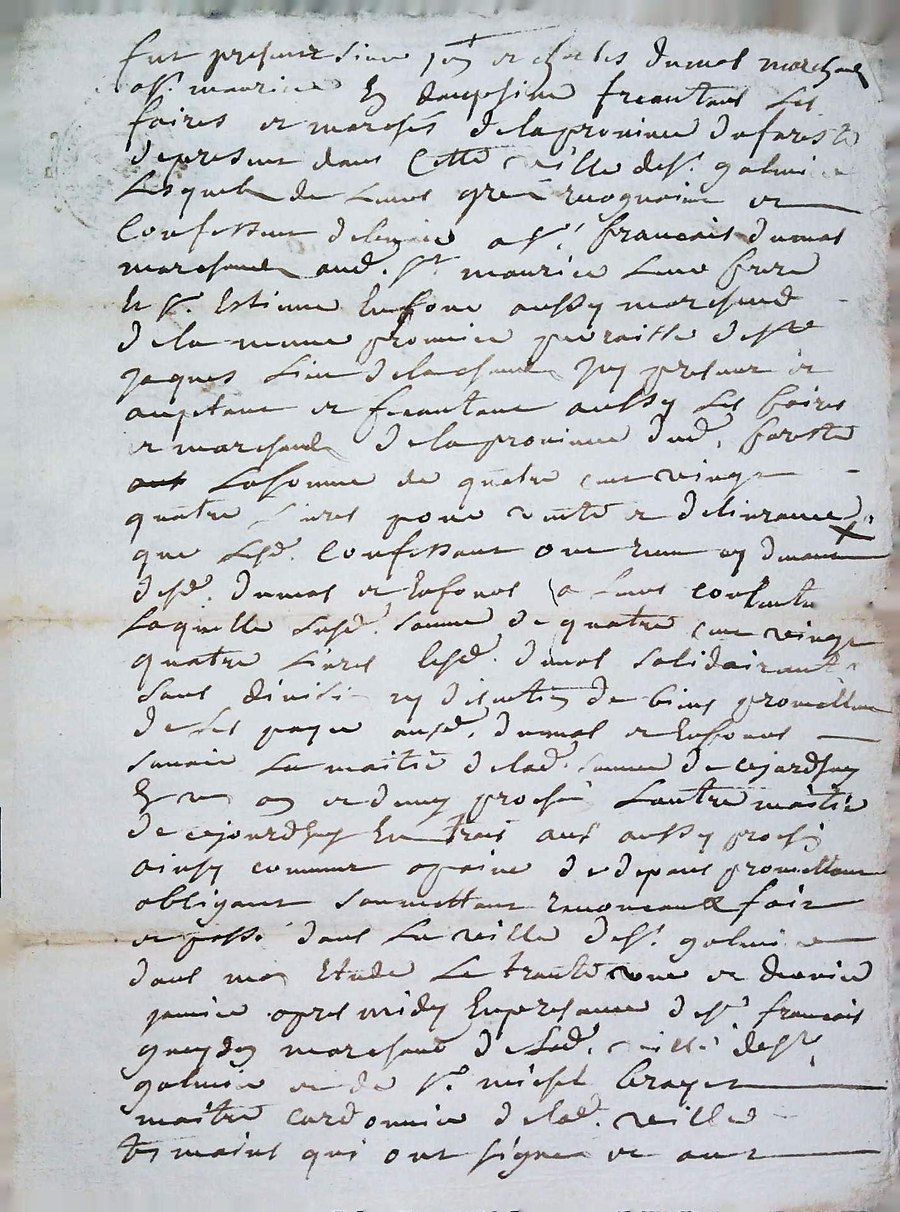 fut present sieur jean et charles dumas marchand
a St. maurice En dauphine frecantans Les
foires et marches de la province du forest
de present dans Cette ville de St. galmi
Lesquels de Leurs gré recognoisse et
Confessent debvoir a Sr. francois dumas
marchand aud. St. maurice Leur frere
Et Sr. Estienne Enfone aussy marchand
de la meme province parroisse de St
jaques Lieu de la cham jcy present et
aceptant et frecantant aussy Les foires
et marchands de la province dud. foreste
aux La somme de quatre cent vingt
quatre Livres pour vente et delivrance
que Lesd. Confessant ont reçeu cy devant
desd. dumas et Enfonos a Leurs contante
Laquelle susd. somme de quatre cent vingt
quatre Livres lesd. dumas solidairement
sans division ny discution de biens promettent
de Les payer ausd. dumas et Enfonos
savoir La moitié de lad. somme de cejourdhuy
En un an et demy prochein Lautre moitie
de cejourdhuy En trois ans aussy prochein
ainsy comme a paine de depans promettans
obligant soumettant renoncant fait
et passé dans La ville de St. galmie
dans mon Etude Le trante une et dernier
janvier apres midy En presance de Sr. francois
gueydon marchand de Lad. ville de St
galmier et de Sr. michel
maitre cordonnier de lad. ville
temoins qui ont signé et aut